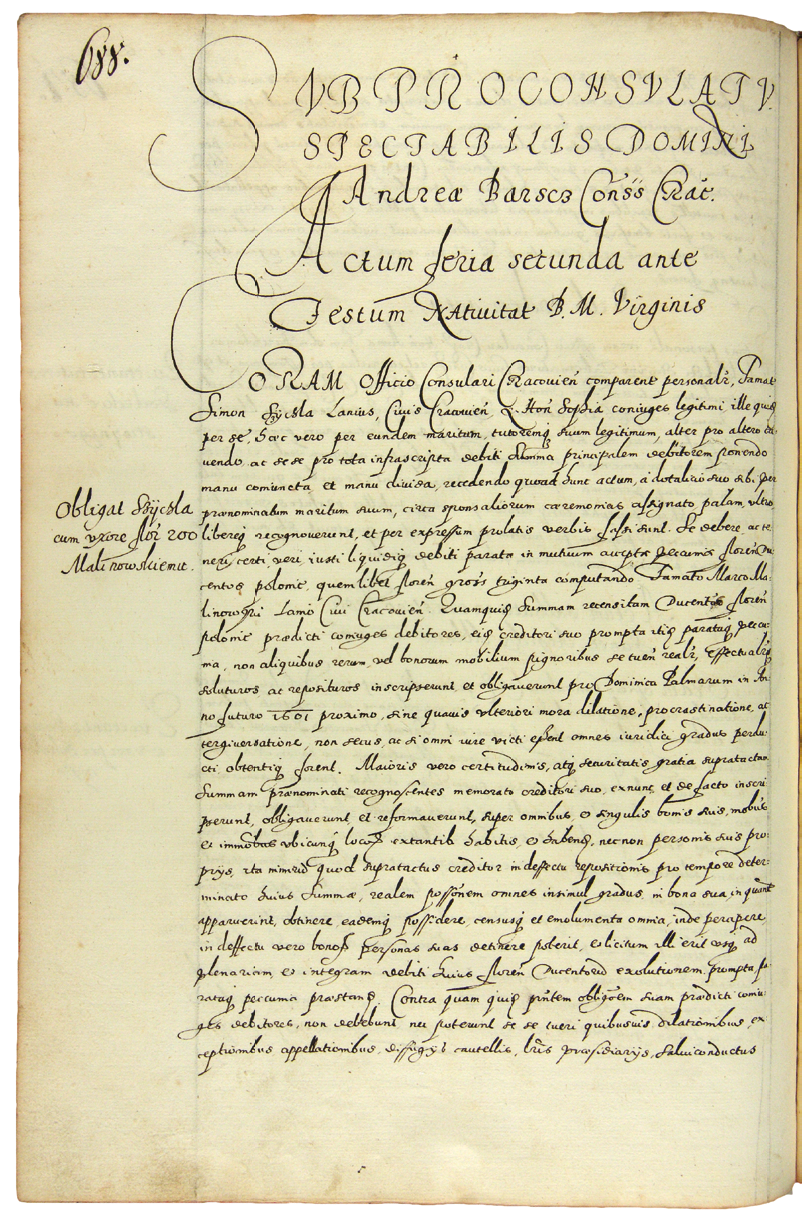 688.
SVB PROCONSVLATV
SPECTABILIS DOMINI
Andreæ Barscz Conss Crac.
Actum feria secunda ante
Festum Nativitat B. M. Virginis
CORAM Officio Consulari Cracovien̄ comparent personalr, Famat
Simon Szÿcsla Lanius, Civis Cracovien̄, & Hon̄ Sophia coniuges legitimi, ille quidē
per se, hæc vero per eundem maritum, tutoremq suum legitimum, alter pro altero ca-
vendo, ac se se pro tota infrascripta debiti summa principalem debitorem ponendo
manu coniuncta et manu divisa, recedendo quoad hunc actum, a dotalicio suo sibi per
prænominatum maritum suum, circa sponsaliorum cæremonias assignato palam, ultro,
Obligat Szÿcsla
cum uxore flor 200
Malinowskiemu.
libereq recognoverunt, et per expressum prolatis verbis fassi sunt. Se debere ac te-
neri certi veri iusti liquidiq debiti paratæ in mutuum acceptæ pecuniæ floren̄ Du-
centos poloniē, quemlibet floren̄ gross triginta computando Famato Marco Ma-
linowski Lanio Civi Cracovien̄. Quamquid Summam recensitam Ducentor floren̄
poloniē prædicti coniuges debitores, eid creditori suo prompta itid parataq pecu-
nia, non aliquibus rerum, vel bonorum mobilium pignoribus se tuen̄ realr, effectualrq
soluturos ac reposituros inscripserunt et obligaverunt pro Dominica Palmarum in An-
no futuro 1601 proximo, sine quavis ulteriori mora dilatione, procrastinatione, ac
tergiversatione, non secus, ac si omni iure victi essent omnes iuridici gradus perdu-
cti obtentiq forent. Maioris vero certitudinis, atq securitatis gratia supratactam
Summam prænominati recognoscentes memorato creditori suo, ex nunc et de facto inscri-
pserunt, obligaverunt et reformaverunt, super omnibus, & singulis bonis suis, mobibus
et immobibus ubicunq locor extantib habitis, & habend, nec non personis suis pro-
prijs, ita nimirū quod supratactus creditor in deffectu repositionis pro tempore deter-
minato huius summæ, realem possōnem omnes insimul gradus, in bona sua, in quant
apparuerint, obtinere, eademq possidere, censusq et emolumenta omnia, inde percipere
in deffectu vero bonor personas suas detinere poterit, & licitum illi erit usq ad
plenariam, & integram debiti huius floren̄ Ducentorū exolutionem prompta, pa-
rataq pecunia præstand. Contra quam quid pn̄tem obligōem suam prædicti coniu-
ges debitores, non debebunt nec poterunt se se tueri quibusvis dilationibus, ex-
ceptionibus appellationibus, diffugijs cautellis, lrīs præsidiarijs, salviconductus